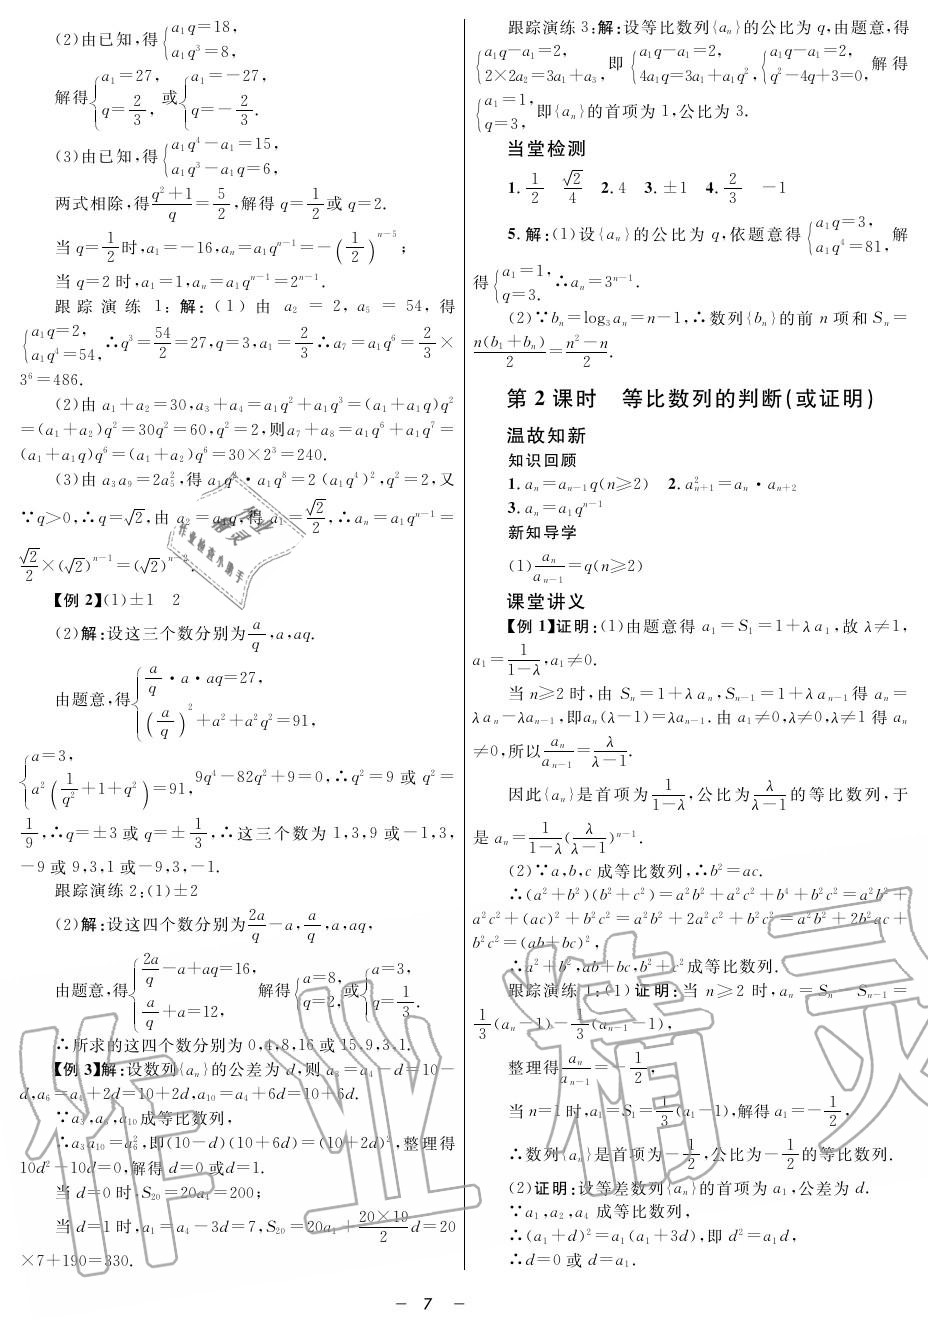 (2)由已知,得{a₁q=18, a₁q³=8,
解得{a₁=27, q=2/3, 或{a₁=-27, q=-2/3.
(3)由已知,得{a₁q⁴-a₁=15, a₁q³-a₁q=6,
两式相除,得(q²+1)/q=5/2,解得 q=1/2或 q=2.
当 q=1/2时,a₁=-16,aₙ=a₁qⁿ⁻¹=-(1/2)ⁿ⁻⁵;
当 q=2 时,a₁=1,aₙ=a₁qⁿ⁻¹=2ⁿ⁻¹.
跟踪演练 1:解:(1)由 a₂=2,a₅=54,得
{a₁q=2, a₁q⁴=54, ∴q³=54/2=27,q=3,a₁=2/3∴a₇=a₁q⁶=2/3×
3⁶=486.
(2)由 a₁+a₂=30,a₃+a₄=a₁q²+a₁q³=(a₁+a₁q)q²
=(a₁+a₂)q²=30q²=60,q²=2,则a₇+a₈=a₁q⁶+a₁q⁷=
(a₁+a₁q)q⁶=(a₁+a₂)q⁶=30×2³=240.
(3)由 a₃a₉=2a₅²,得 a₁q²·a₁q⁸=2(a₁q⁴)²,q²=2,又
∵q>0,∴q=√2,由 a₂=a₁q,得 a₁=√2/2,∴aₙ=a₁qⁿ⁻¹=
√2/2×(√2)ⁿ⁻¹=(√2)ⁿ⁻².
【例 2】(1)±1 2
(2)解:设这三个数分别为a/q,a,aq.
由题意,得{a/q·a·aq=27, (a/q)²+a²+a²q²=91,
{a=3, a²(1/q²+1+q²)=91, 9q⁴-82q²+9=0,∴q²=9 或 q²=
1/9,∴q=±3 或 q=±1/3,∴这三个数为 1,3,9 或-1,3,
-9 或 9,3,1 或-9,3,-1.
跟踪演练 2:(1)±2
(2)解:设这四个数分别为2a/q-a,a/q,a,aq,
由题意,得{2a/q-a+aq=16, a/q+a=12, 解得{a=8, q=2,或{a=3, q=1/3.
∴所求的这四个数分别为 0,4,8,16 或 15,9,3,1.
【例 3】解:设数列{aₙ}的公差为 d,则 a₃=a₄-d=10-
d,a₆=a₄+2d=10+2d,a₁₀=a₄+6d=10+6d.
∵a₃,a₆,a₁₀成等比数列,
∴a₃a₁₀=a₆²,即(10-d)(10+6d)=(10+2d)²,整理得
10d²-10d=0,解得 d=0 或d=1.
当 d=0 时,S₂₀=20a₄=200;
当 d=1 时,a₁=a₄-3d=7,S₂₀=20a₁+(20×19)/2 d=20
×7+190=330.
跟踪演练 3:解:设等比数列{aₙ}的公比为 q,由题意,得
{a₁q-a₁=2, 2×2a₂=3a₁+a₃, 即{a₁q-a₁=2, 4a₁q=3a₁+a₁q², {a₁q-a₁=2, q²-4q+3=0, 解得
{a₁=1, q=3, 即{aₙ}的首项为 1,公比为 3.
当堂检测
1. 1/2 √2/4 2. 4 3. ±1 4. 2/3 -1
5. 解:(1)设{aₙ}的公比为 q,依题意得{a₁q=3, a₁q⁴=81, 解
得{a₁=1, q=3. ∴aₙ=3ⁿ⁻¹.
(2)∵bₙ=log₃aₙ=n-1,∴数列{bₙ}的前 n 项和 Sₙ=
n(b₁+bₙ)/2=(n²-n)/2.
第 2 课时 等比数列的判断(或证明)
温故知新
知识回顾
1. aₙ=aₙ₋₁q(n≥2) 2. aₙ₊₁²=aₙ·aₙ₊₂
3. aₙ=a₁qⁿ⁻¹
新知导学
(1)aₙ/aₙ₋₁=q(n≥2)
课堂讲义
【例 1】证明:(1)由题意得 a₁=S₁=1+λa₁,故 λ≠1,
a₁=1/(1-λ),a₁≠0.
当 n≥2 时,由 Sₙ=1+λaₙ,Sₙ₋₁=1+λaₙ₋₁得 aₙ=
λaₙ-λaₙ₋₁,即aₙ(λ-1)=λaₙ₋₁.由 a₁≠0,λ≠0,λ≠1 得 aₙ
≠0,所以aₙ/aₙ₋₁=λ/(λ-1).
因此{aₙ}是首项为1/(1-λ),公比为λ/(λ-1)的等比数列,于
是 aₙ=1/(1-λ)(λ/(λ-1))ⁿ⁻¹.
(2)∵a,b,c 成等比数列,∴b²=ac.
∴(a²+b²)(b²+c²)=a²b²+a²c²+b⁴+b²c²=a²b²+
a²c²+(ac)²+b²c²=a²b²+2a²c²+b²c²=a²b²+2b²ac+
b²c²=(ab+bc)²,
∴a²+b²,ab+bc,b²+c²成等比数列.
跟踪演练 1:(1)证明:当 n≥2 时,aₙ=Sₙ-Sₙ₋₁=
1/3(aₙ-1)-1/3(aₙ₋₁-1),
整理得aₙ/aₙ₋₁=-1/2,
当 n=1 时,a₁=S₁=1/3(a₁-1),解得 a₁=-1/2,
∴数列{aₙ}是首项为-1/2,公比为-1/2的等比数列.
(2)证明:设等差数列{aₙ}的首项为 a₁,公差为 d.
∵a₁,a₂,a₄ 成等比数列,
∴(a₁+d)²=a₁(a₁+3d),即 d²=a₁d,
∴d=0 或 d=a₁.
- 7 -
作业精灵
作业精灵
作业检查小助手